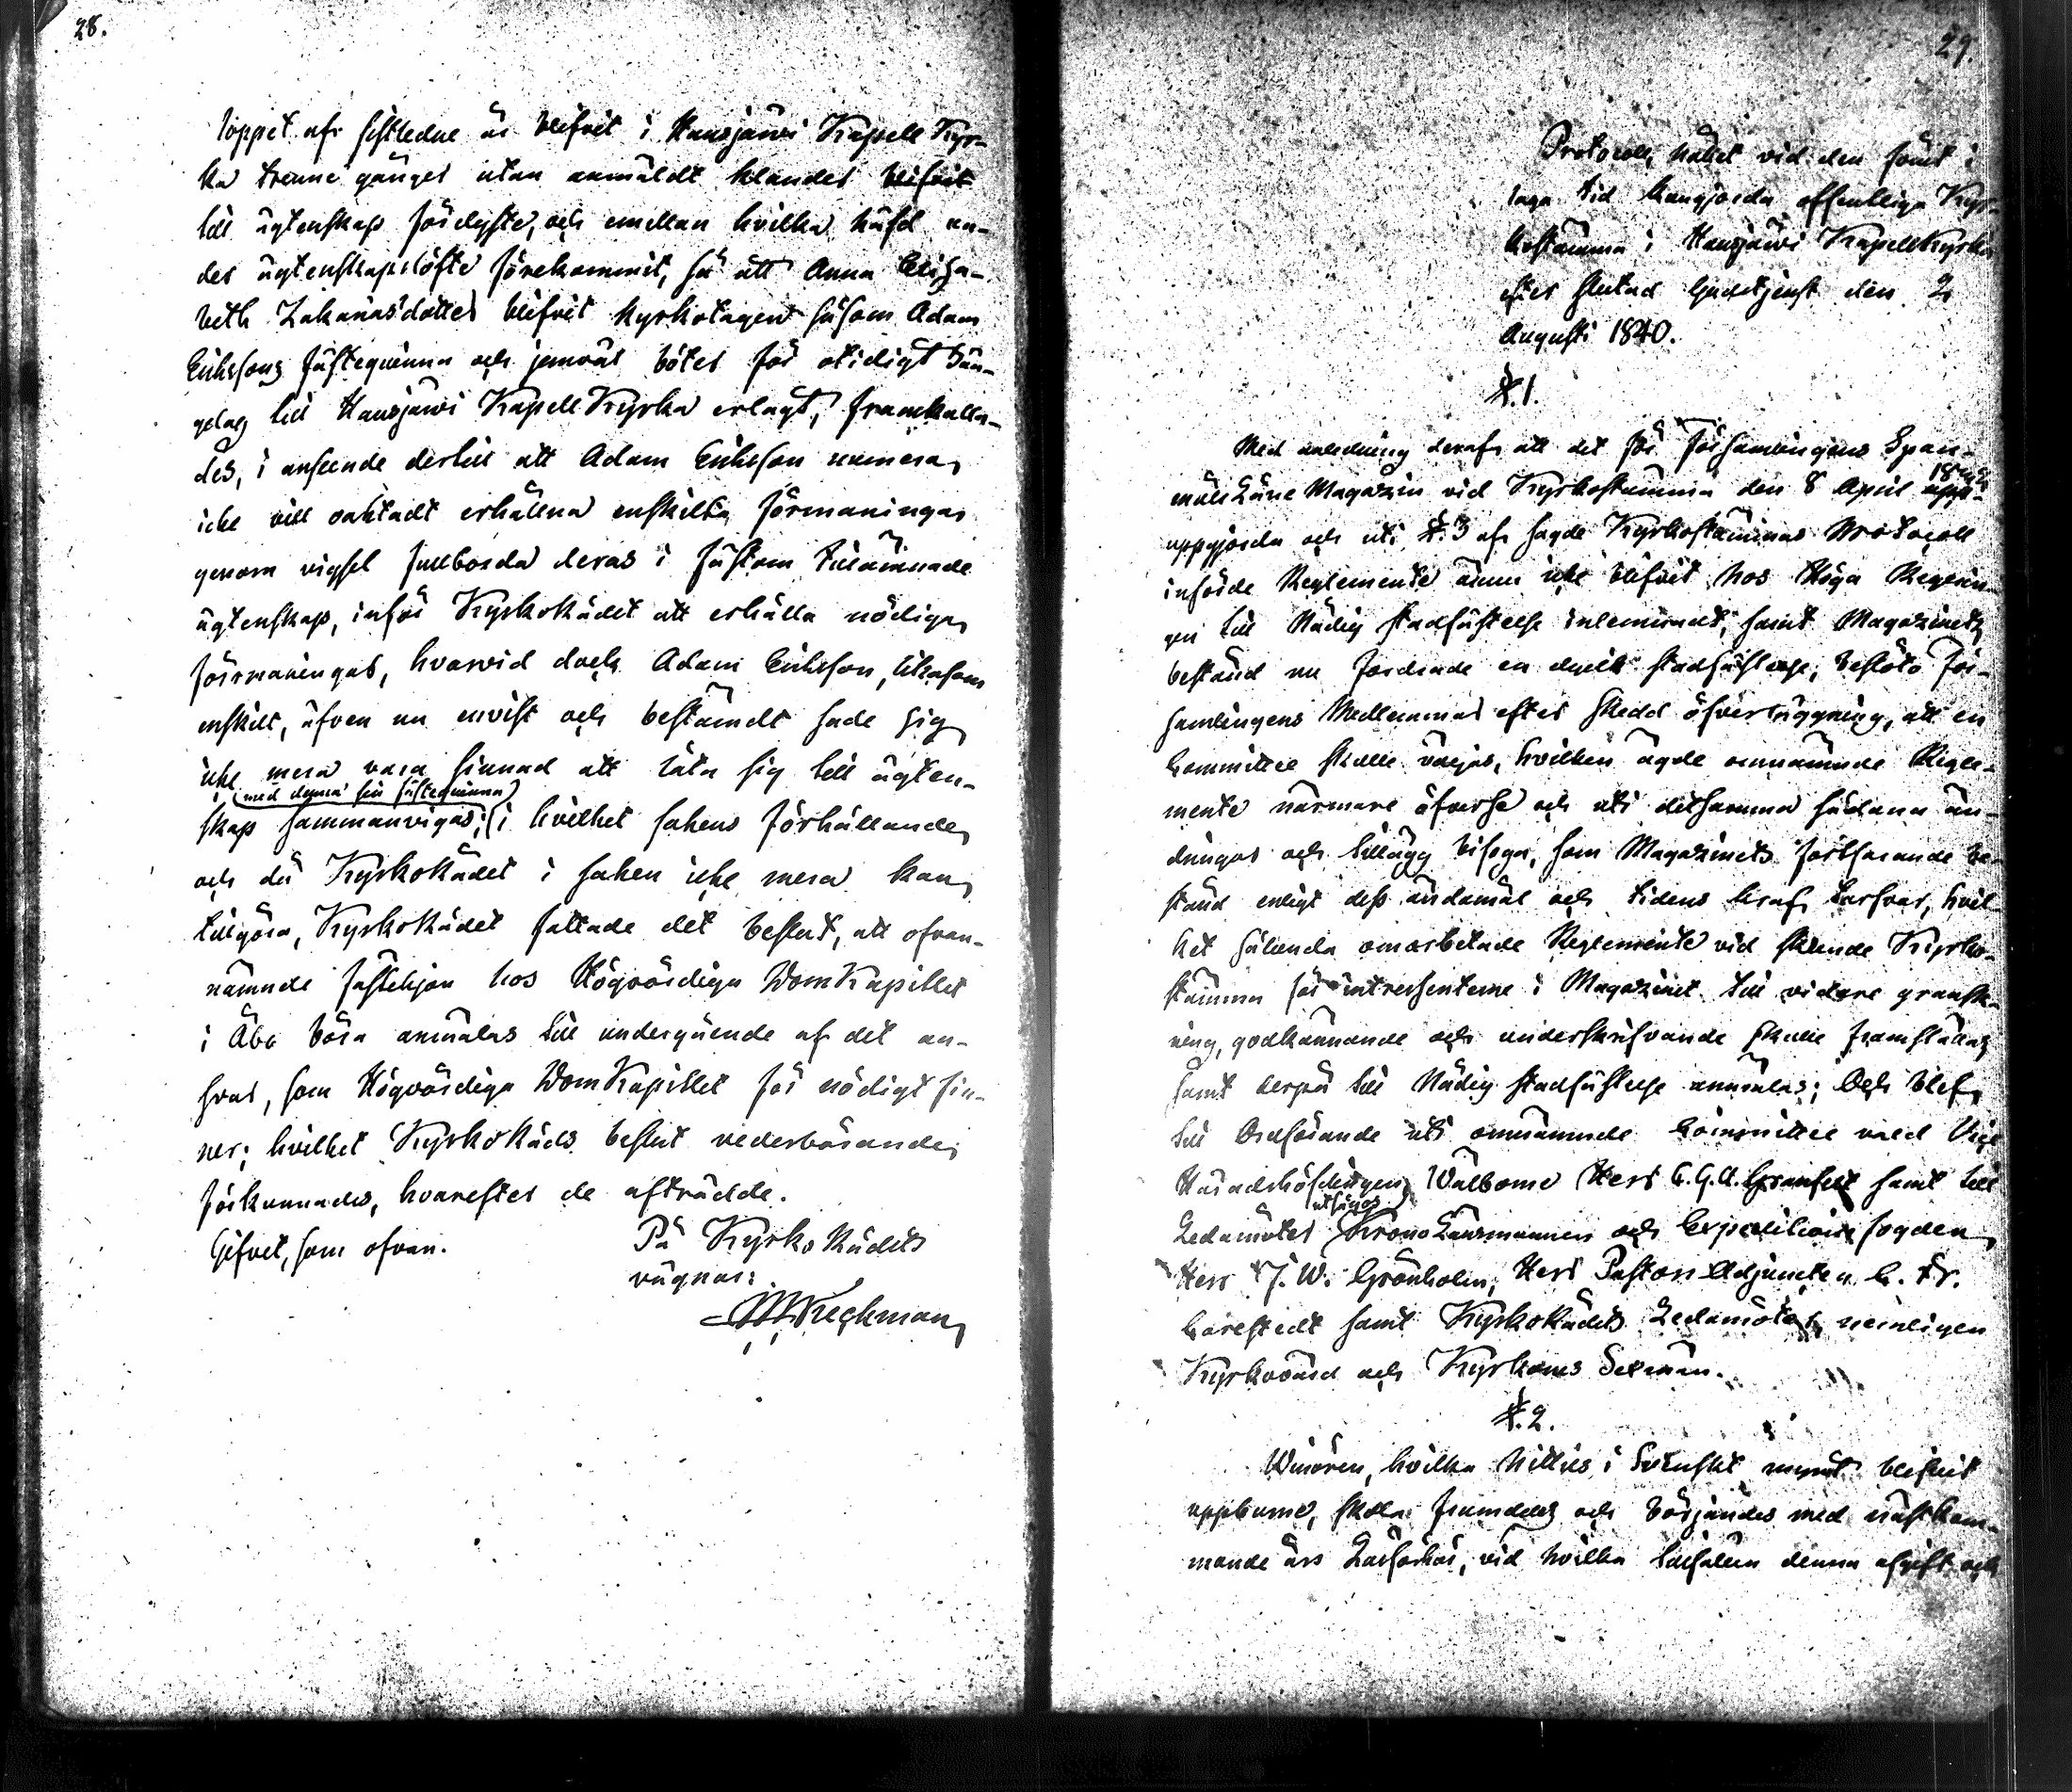 28.
loppet af sistledne år blifvit i Hausjärvi Kapell Kyr-
ka trenne gånger utan anmäldt klander blifvit
till ägtenskap förlyste, och emellan hvilka häfd un-
der ägtenskapslöfte förekommit, så att Anna Elisa-
beth Zakariasdotter blifvit kyrkotagen såsom Adam
Erikssons fästeqvinna och jemväl böter för otidigt sän-
gelag till Hausjärvi Kapell Kyrka erlagt, framkalla-
des, i anseende dertill att Adam Eriksson numera
icke vill oaktadt erhållna enskilta förmaningar
genom vigsel fullborda deras i fästom tillämnade
ägtenskap, inför KyrkoRådet att erhålla nödiga
förmaningar, hvarvid dock Adam Eriksson, likasom
enskilt, äfven nu envist och bestämdt sade sig
icke mera vara sinnad att låta sig till ägten-
med denna sin fästeqvinna
skap sammanvigas; i hvilket sakens förhållande
och då KyrkoRådet i saken icke mera kan
tillgöra, KyrkoRådet fattade det beslut, att ofvan-
nämnde fästehjon hos Högvördiga DomKapitlet
i Åbo böra anmälas till undergående af det an-
svar, som Högvördiga DomKapitlet för nödigt fin-
ner; hvilket KyrkoRåds beslut vederbörande
förkunnades, hvarefter de afträdde.
Gifvet, som ofvan.
På KyrkoRådets
vägnar:
29.
Protocoll, hållet vid den som i
laga tid kungjorda offentliga Kyr-
kostämma i Hausjärvi KapellKyrka
efter slutad Gudstjenst den 2
Augusti 1840.
§. 1.
Med anledning deraf att det för Församlingens Span-
måls Låne Magazin vid Kyrkostämma den 8 April
uppgjorda och uti §. 3 af sagde Kyrkostämmas Protocoll
införde Reglemente ännu icke blifvit hos Höga Regerin-
gen till Nådig stadfästelse inlemnadt, samt Magazinets
bestånd nu fordrade en dylik stadfästelse, beslöto För-
samlingens Medlemmar efter skedd öfverläggning, att en
Committee skulle väljas, hvilken ägde omnämnde Regle-
mente närmare öfverse och uti detsamma sådana än-
dringar och tillägg bifoga, som Magazinets fortfarande be-
stånd enligt dess ändamål och tidens kraf tarfvar, hvil-
ket sålunda omarbetade Reglemente vid skeende Kyrko-
stämma för intressenterne i Magazinet till vidare gransk-
ning, godkännande och underskrifvande skulle framställas
samt derpå till Nådig stadfästelse anmälas; Och blef
till Ordförande uti omnämnde Committee vald Vice
Häradshöfdingen Välborne Herr C. G. A. Granfelt samt till
utsågos
Ledamöter KronoLänsmannen och Expeditions fogden
Herr J. W. Grönholm, Herr Pastors Adjuncten C. Fr.
Carestedt samt KyrkoRådets Ledamöter, nemligen
Kyrkovärd och Kyrkones Sexmän.
§. 2.
Winören, hvilka hittils i Svenskt mynt blifvit
uppburne, skola framdeles och börjandes med nästkom-
mande års Läsförhör, vid hvilka tillfällen denna afgift och